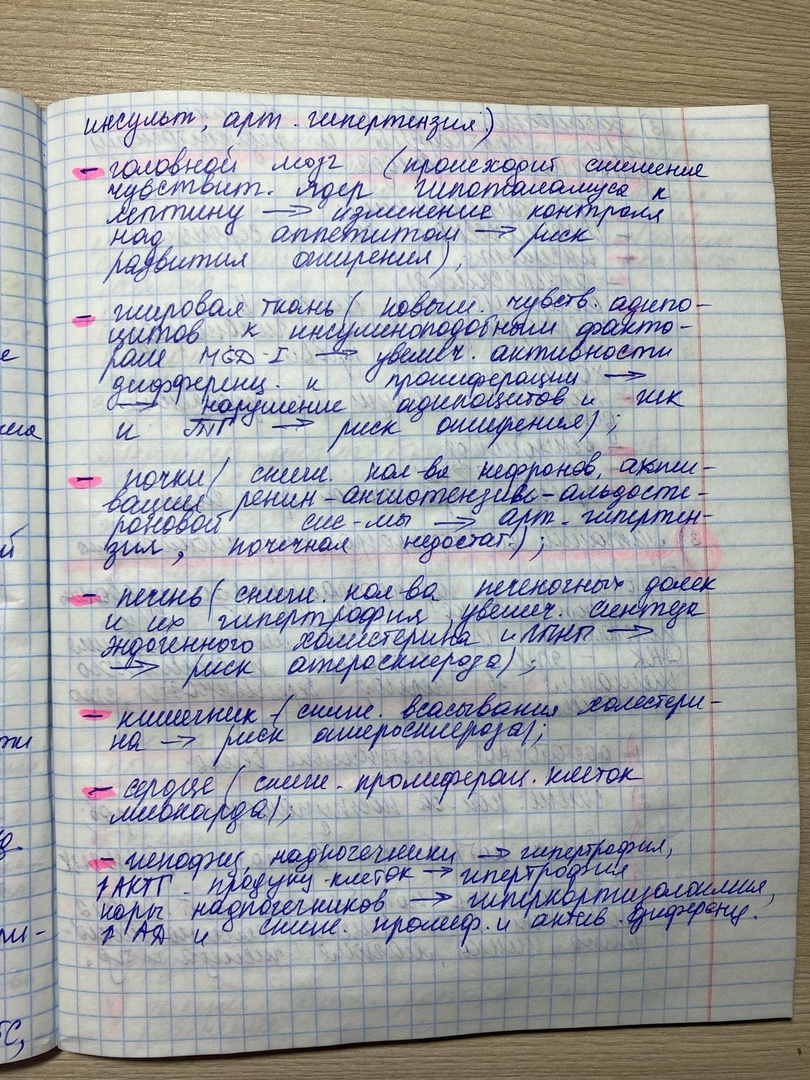 инсульт, арт. гипертензия)
- головной мозг (происходит снижение
чувствит. ядер гипоталамуса к
лептину → изменение контроля
над аппетитом → риск
развития ожирения);
- жировая ткань (повыш. чувств. адипо-
цитов к инсулиноподобным факто-
рам → увелич. активности
дифференц. и пролиферации →
→ нарушение адипоцитов и жк
и → риск ожирения);
- почки (сниж. кол-ва нефронов, акти-
вация ренин-ангиотензин-альдосте-
роновой сис-мы → арт. гипертен-
зия, почечная недостат.);
- печень (сниж. кол-ва печеночных долек
и их гипертрофия, увелич. синтеза
эндогенного холестерина и ЛПНП →
→ риск атеросклероза);
- кишечник (сниж. всасывания холестери-
на → риск атеросклероза);
- сердце (сниж. пролиферац. клеток
миокарда);
- гипофиз, надпочечники → гипертрофия,
↑АКТГ-продуц. клеток → гипертрофия
коры надпочечников → гиперкортизолемия,
↑АД и сниж. пролиф. и актив. дифференц.